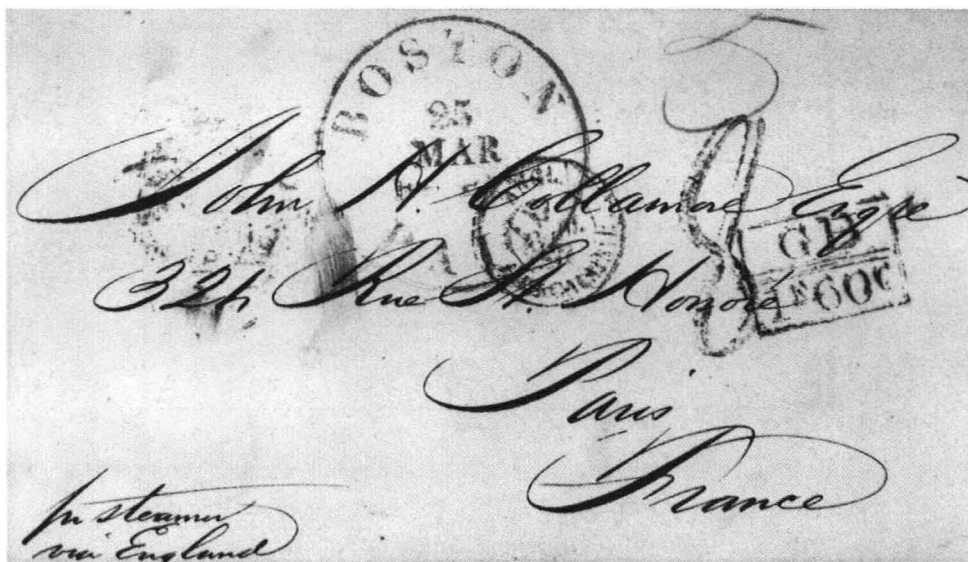 BOSTON
25
MAR
5
John H. Collamore Esqre
324 Rue St. Honoré
GB
1F60C
Paris
France
pr steamer
via England